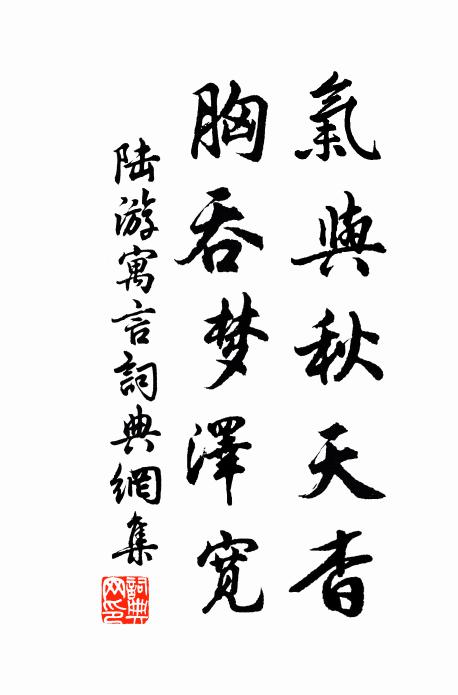 氣與秋天杳
胸吞梦澤宽
陆游寓言詞典網集
詞典网印